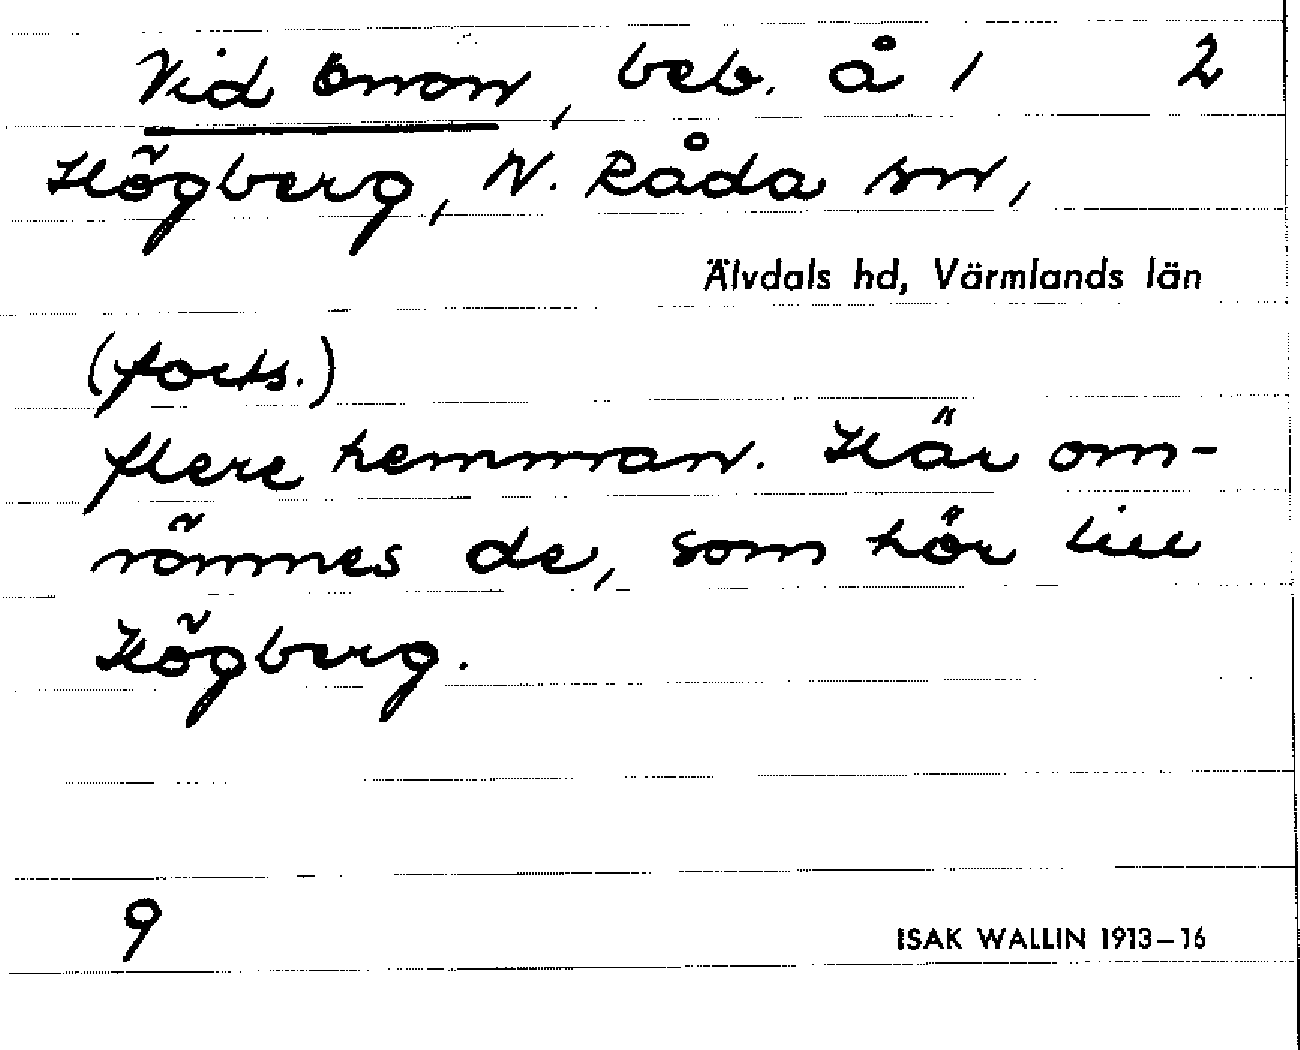 Vid beb. å 1 2
Högberg, N. Råda sn,
Älvdals hd, Värmlands län
(forts.)
flere hemman. Här om-
nämnes de, som hör till
Högberg.
9
ISAK WALLIN 1913–16